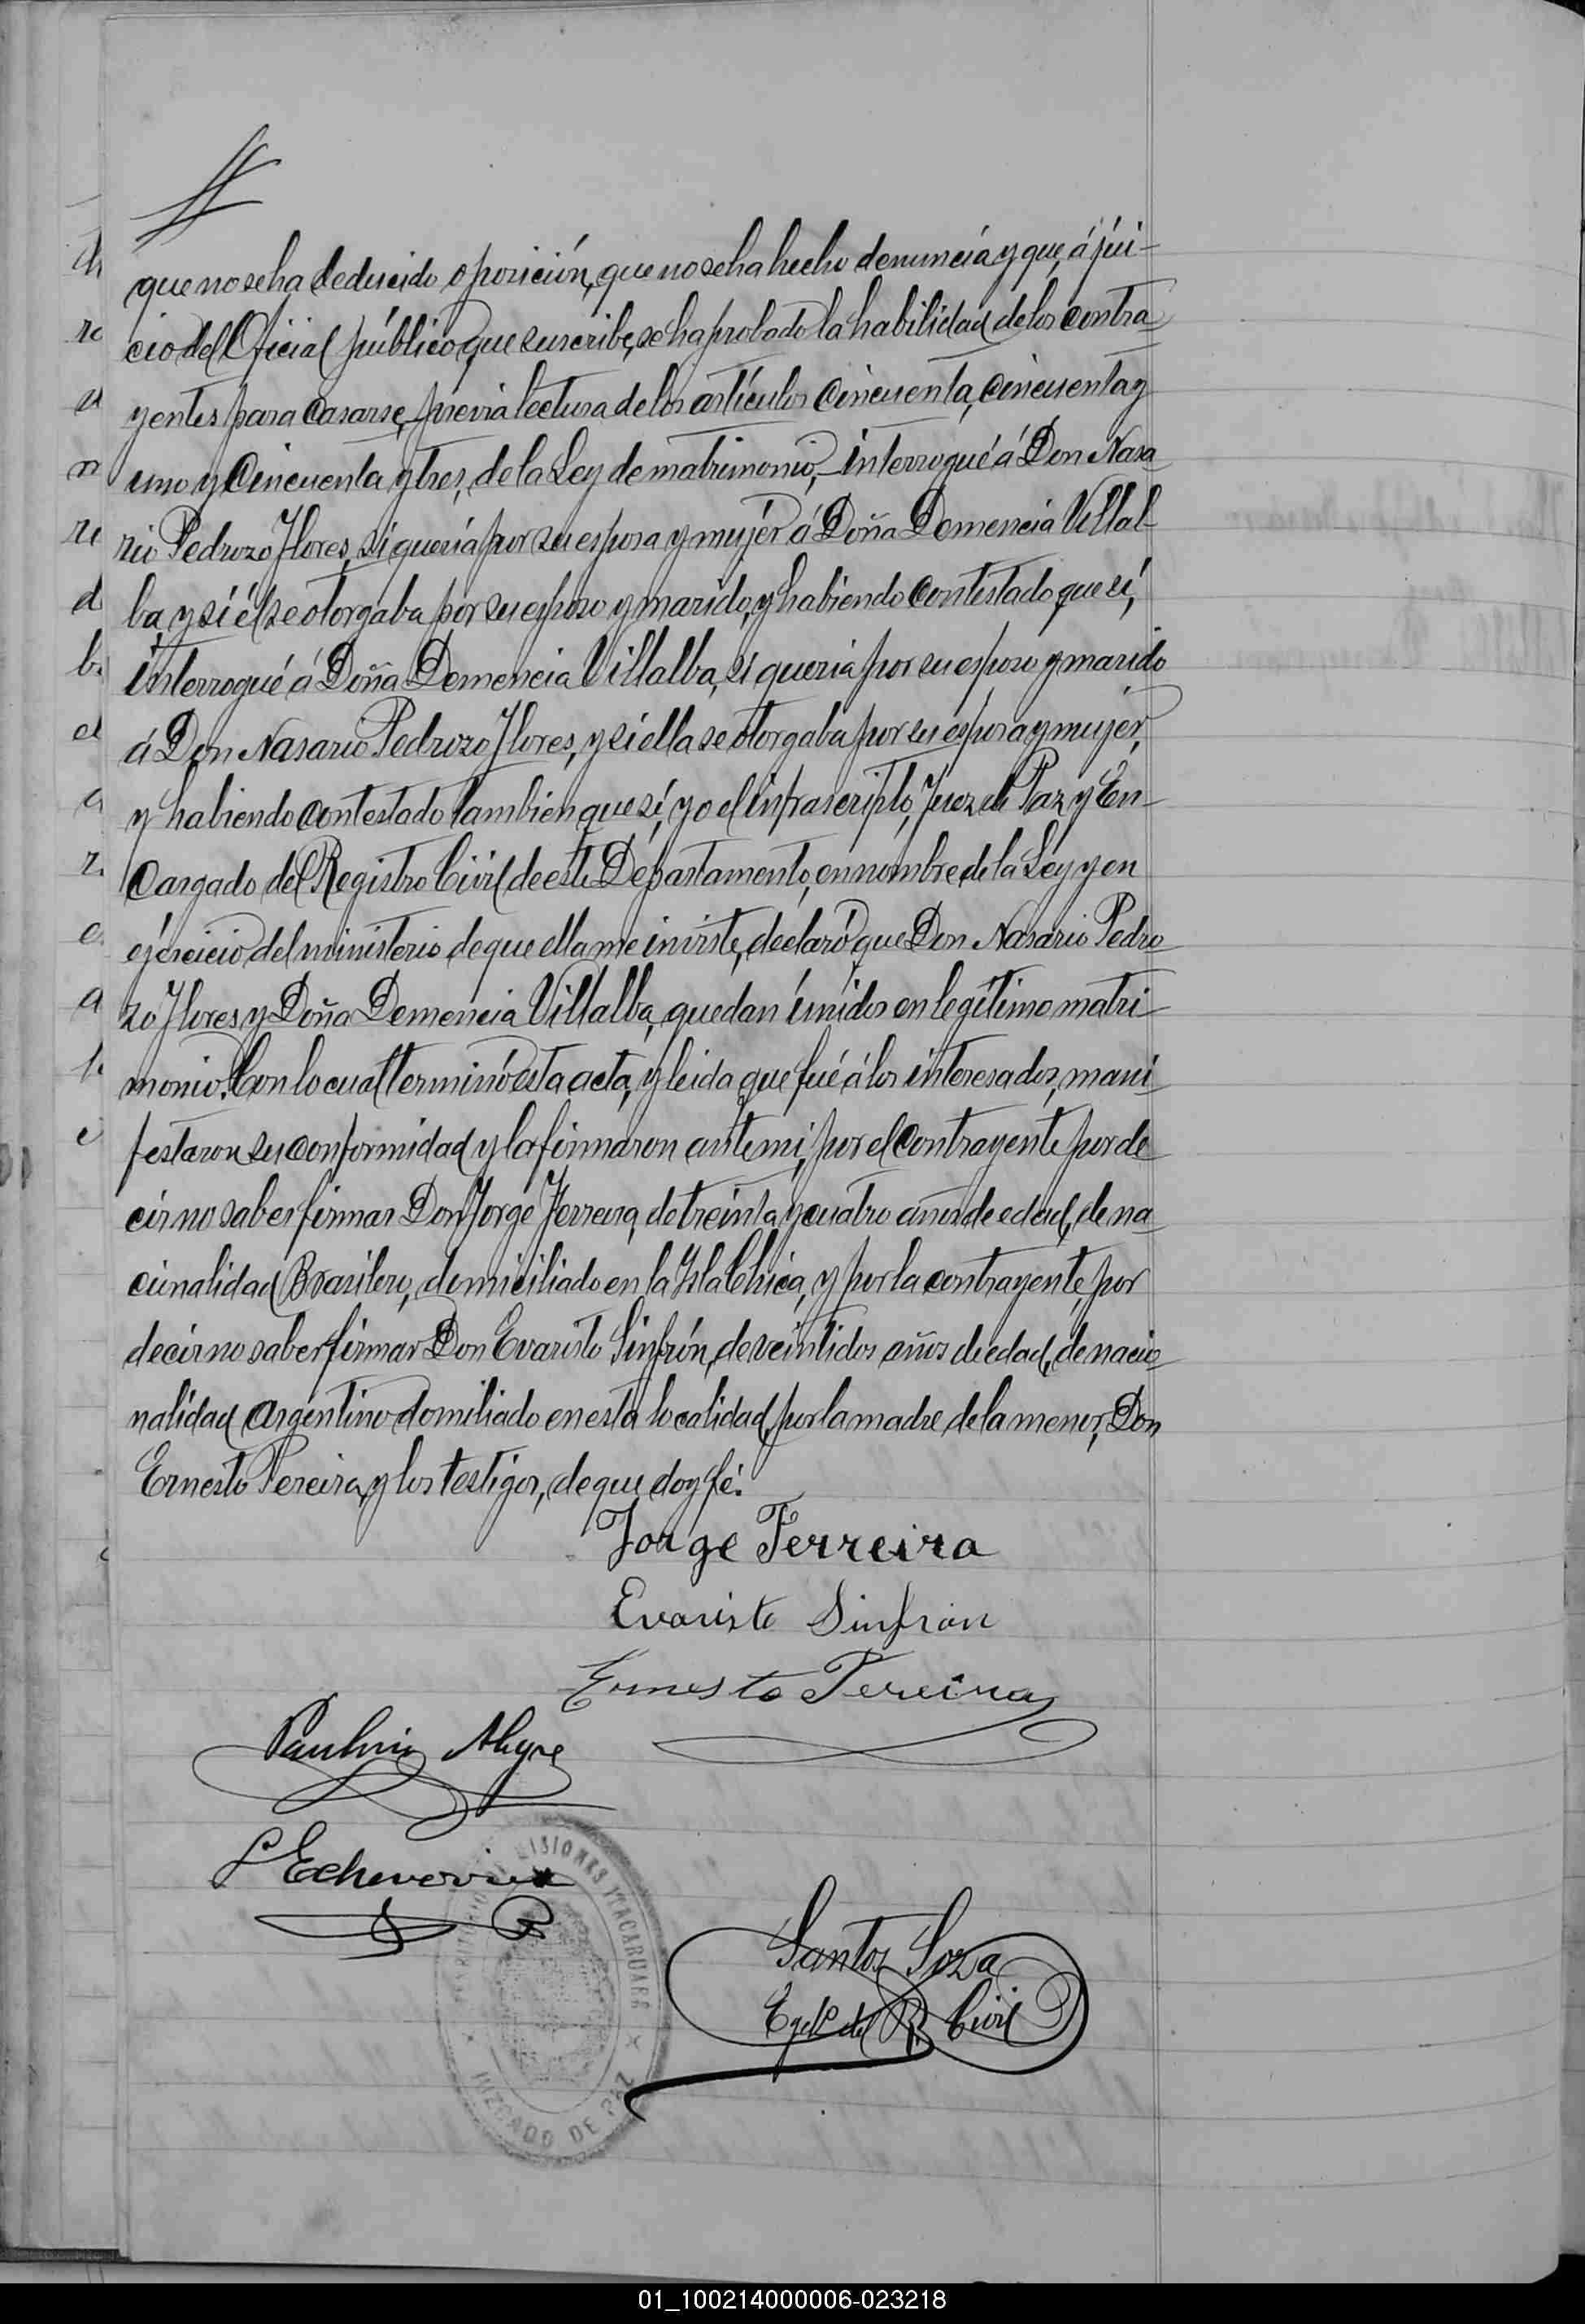 que no se ha deducido oposición, que no se ha hecho denuncia y que, á jui-
cio del Oficial público, que suscribe, se ha probado la habilidad de los contra
yentes para casarse, previa lectura de los artículos Cincuenta, cincuenta y
uno y Cincuenta y tres, de la Ley de matrimonio,- interrogué á Don Nasa
rio Pedrozo Flores, si queria por su esposa y mujer á Doña Demencia Villal-
ba, y si él se otorgaba por su esposo y marido, y habiendo Contestado que sí,
interrogué á Doña Demencia Villalba, si queria por su esposo y marido
á Don Nasario Pedrozo Flores, y si ella se otorgaba por su esposa y mujer,
y habiendo contestado tambien que sí, yo el infrascripto, Juez de Paz y En-
cargado del Registro Civil de este Departamento, en nombre de la Ley y en
ejercicio del ministerio de que ella me inviste, declaró que Don Nasario Pedro
zo Flores y Doña Demencia Villalba, quedan únidos en legítimo matri-
monio. Con lo cual terminó esta acta, y leida que fué á los interesados, mani
festaron su conformidad y la firmaron ante mi, por el Contrayente por de
cir no saber firmar Don Jorge Ferreira, de treinta y cuatro años de edad, de na
cionalidad Brasilero, domiciliado en la Isla Chica, y por la contrayente, por
decir no saber firmar Don Evaristo Sinfrón, de veintidos años de edad, de nacio
nalidad Argentino domiliado en esta localidad, por la madre de la menor, Don
Ernesto Pereira, y los testigos, de que doy fé.
Jorge Ferreira
Evaristo Sinfron
Ernesto Pereira
Paulino
Echeverria
MISIONES
JUZGADO DE PAZ
Santos Soza
Egdo. del R. Civil
01_100214000006-023218